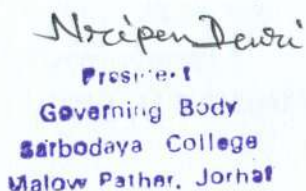 Nripen Dewri
President
Governing Body
Sarbodaya College
Malow Pather, Jorhat